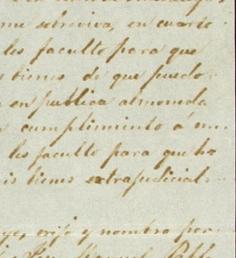 me sobreviva, en cuarto
les faculto para que
s bienes de que puedo
en publica almoneda
cumplimiento á mi
les faculto para que ho
is bienes extrajudicial
ye, erijo y nombro por